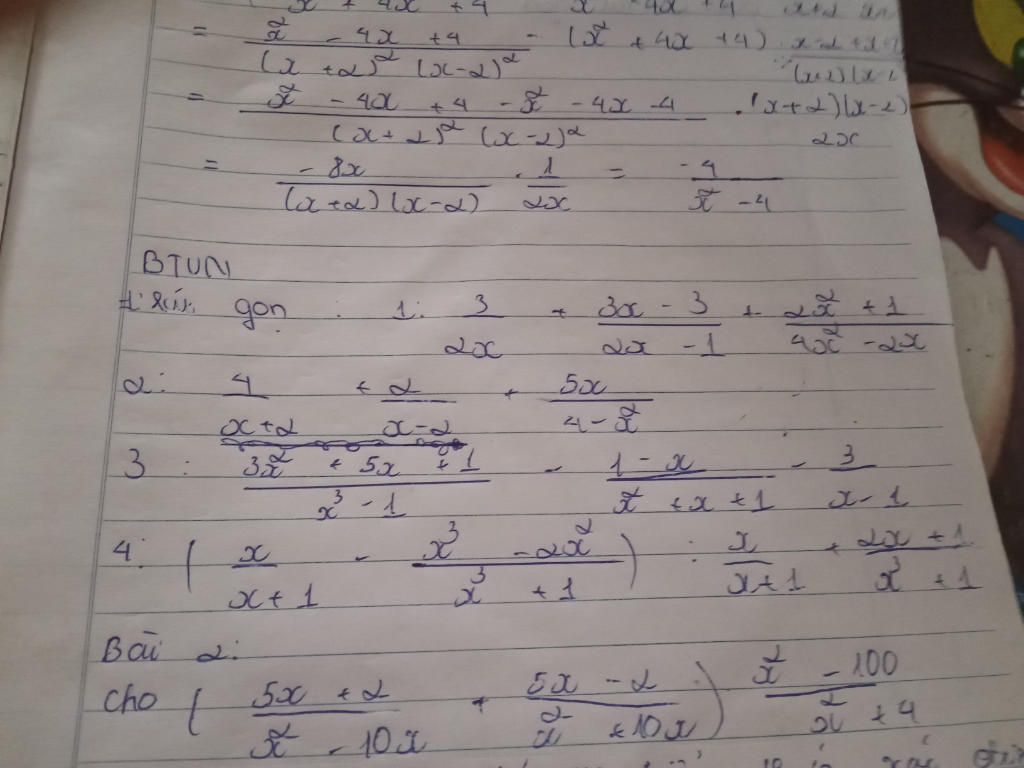 x² + 4x + 4 x² - 4x + 4 x+2
= (x² - 4x + 4 - (x² + 4x + 4)) / ((x+2)² (x-2)²) : (x-2 + x+2) / ((x+2)(x-2))
= (x² - 4x + 4 - x² - 4x - 4) / ((x+2)² (x-2)²) . (x+2)(x-2) / 2x
= -8x / ((x+2)(x-2)) . 1 / 2x = -4 / (x² - 4)
BTVN
1: rút gọn : 1: 3 / 2x + (3x - 3) / (2x - 1) + (2x² + 1) / (4x² - 2x)
2: 4 / (x+2) + 2 / (x-2) + 5x / (4 - x²)
3 : (3x² + 5x + 1) / (x³ - 1) - (1 - x) / (x² + x + 1) - 3 / (x - 1)
4: ( x / (x+1) - (x³ - 2x²) / (x³ + 1) ) : x / (x+1) + (2x + 1) / (x³ + 1)
Bài 2:
cho ( (5x + 2) / (x² - 10x) + (5x - 2) / (x² + 10x) ) (x² - 100) / (x² + 4)